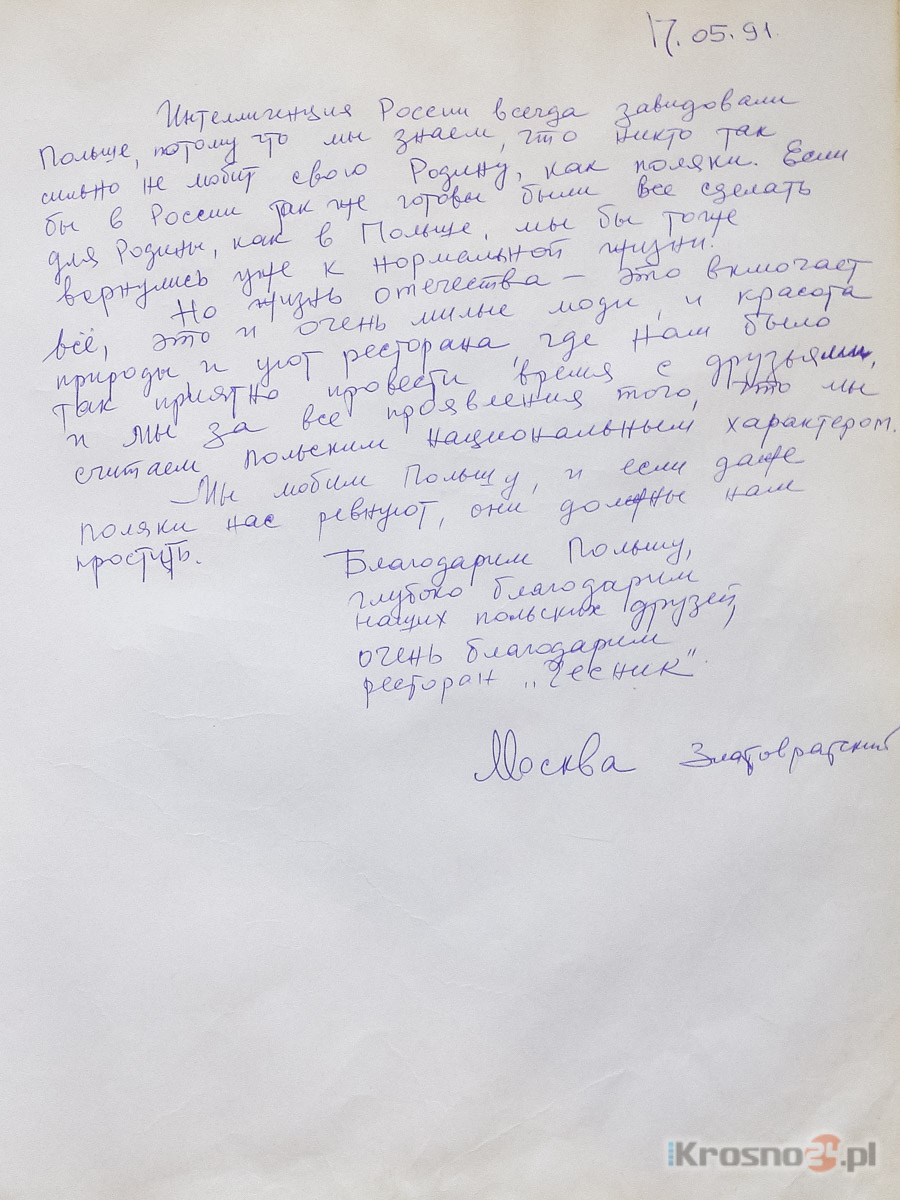 17.05.91
Интеллигенция России всегда завидовали
Польше, потому что мы знаем, что никто так
сильно не любит свою Родину, как поляки. Если
бы в России так же готовы были все сделать
для Родины, как в Польше, мы бы тоже
вернулись уже к нормальной жизни.
Но жизнь отечества – это включает
всё, это и очень милые люди, и красота
природы и уют ресторана, где нам было
так приятно провести время с друзьями,
и мы за все проявления того, что мы
считаем польским национальным характером.
Мы любим Польшу, и если даже
поляки нас ревнуют, они должны нам
простить.
Благодарим Польшу,
глубоко благодарим
наших польских друзей,
очень благодарим
ресторан „Чесник".
Москва Златовратский
iKrosno24.pl